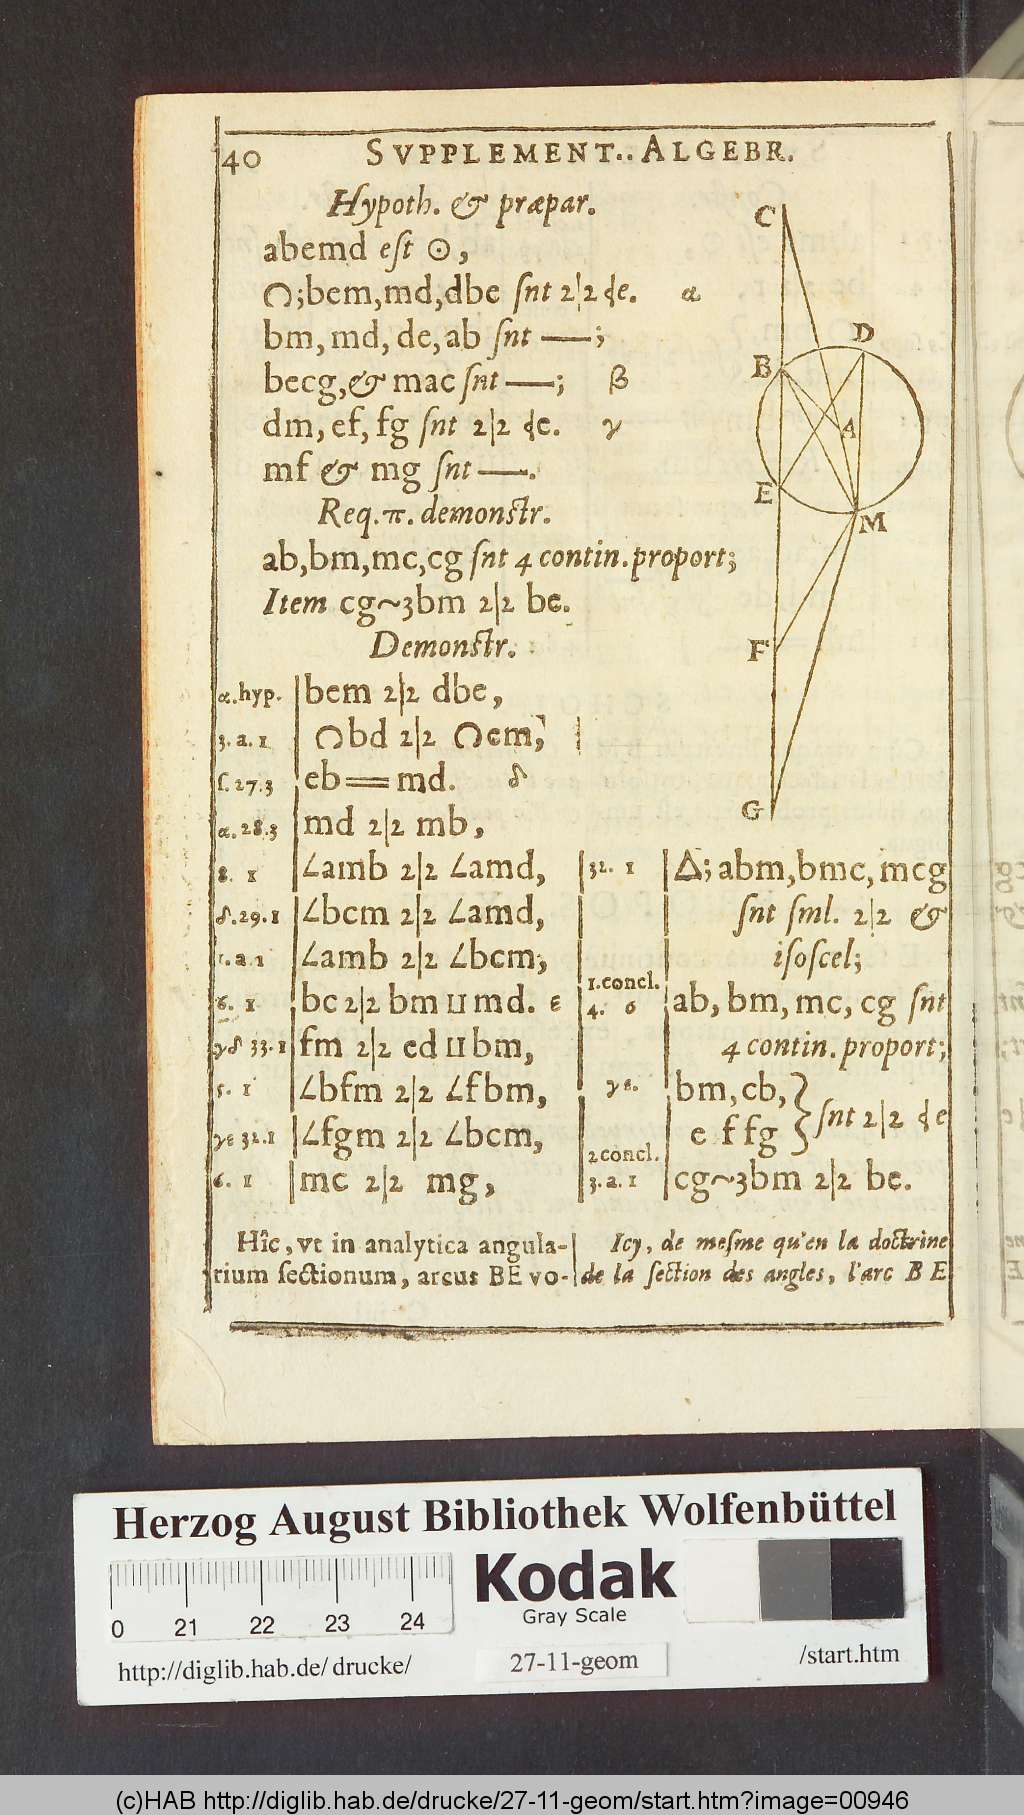 40 SVPPLEMENT.. ALGEBR.
Hypoth. & præpar.
abemd eſt ⊙,
∩;bem,md,dbe ſnt 2|2 de. α
bm, md, de, ab ſnt —;
becg,& mac ſnt —; β
dm, ef, fg ſnt 2|2 de. γ
mf & mg ſnt —.
Req. π. demonstr.
ab,bm,mc,cg ſnt 4 contin. proport;
Item cg~3bm 2|2 be.
Demonstr.
C
D
B
A
E
M
F
G
α.hyp. | bem 2|2 dbe,
3. a. 1 | ∩bd 2|2 ∩em,
ſ. 27.3 | eb═md. δ
α. 28.3 | md 2|2 mb,
8. 1 | ∠amb 2|2 ∠amd,
δ. 29. 1 | ∠bcm 2|2 ∠amd,
1. a 1 | ∠amb 2|2 ∠bcm,
6. 1 | bc 2|2 bm ⊔ md. ε
γδ 33. 1 | fm 2|2 ed ⊔ bm,
5. 1 | ∠bfm 2|2 ∠fbm,
γε 32.1 | ∠fgm 2|2 ∠bcm,
6. 1 | mc 2|2 mg,
32. 1 | Δ; abm,bmc, mcg
ſnt ſml. 2|2 &
iſoſcel;
1.concl.
4. 6 | ab, bm, mc, cg ſnt
4 contin. proport;
γε. | bm, cb, }
e f fg } ſnt 2|2 de
2concl.
3. a. 1 | cg~3bm 2|2 be.
Hîc, vt in analytica angula-
rium ſectionum, arcus BE vo-
Icy, de meſme qu'en la doctrine
de la ſection des angles, l'arc B E
Herzog August Bibliothek Wolfenbüttel
0 21 22 23 24
Kodak
Gray Scale
http://diglib.hab.de/ drucke/ 27-11-geom /start.htm
(c)HAB http://diglib.hab.de/drucke/27-11-geom/start.htm?image=00946